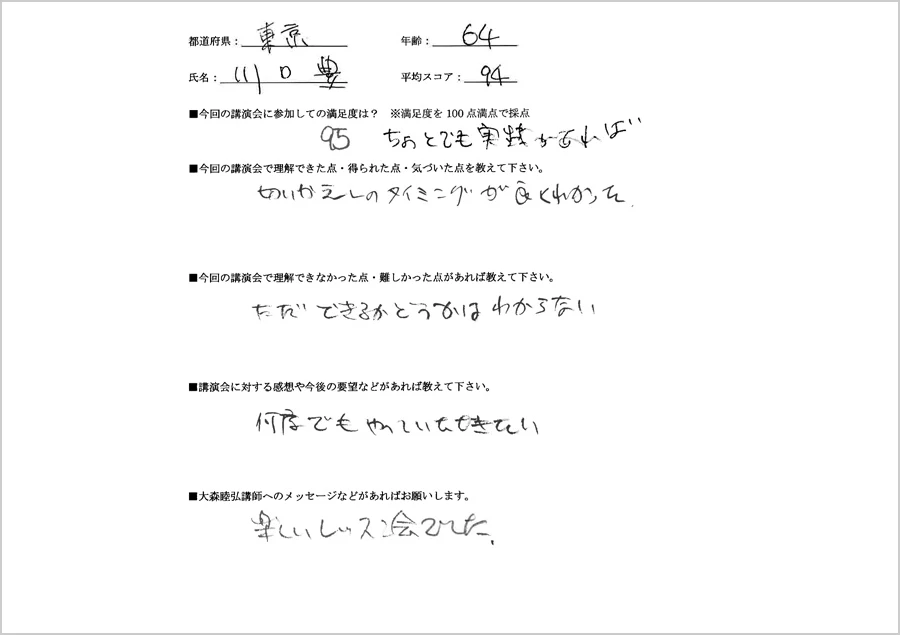 都道府県：東京 年齢：64
氏名：川口 豊 平均スコア：94
■今回の講演会に参加しての満足度は？ ※満足度を100点満点で採点
95 ちょっとでも実技があれば
■今回の講演会で理解できた点・得られた点・気づいた点を教えて下さい。
切りかえしのタイミングが良くわかった.
■今回の講演会で理解できなかった点・難しかった点があれば教えて下さい。
ただできるかどうかはわからない
■講演会に対する感想や今後の要望などがあれば教えて下さい。
何度でもやっていただきたい
■大森睦弘講師へのメッセージなどがあればお願いします。
楽しいレッスン会でした.